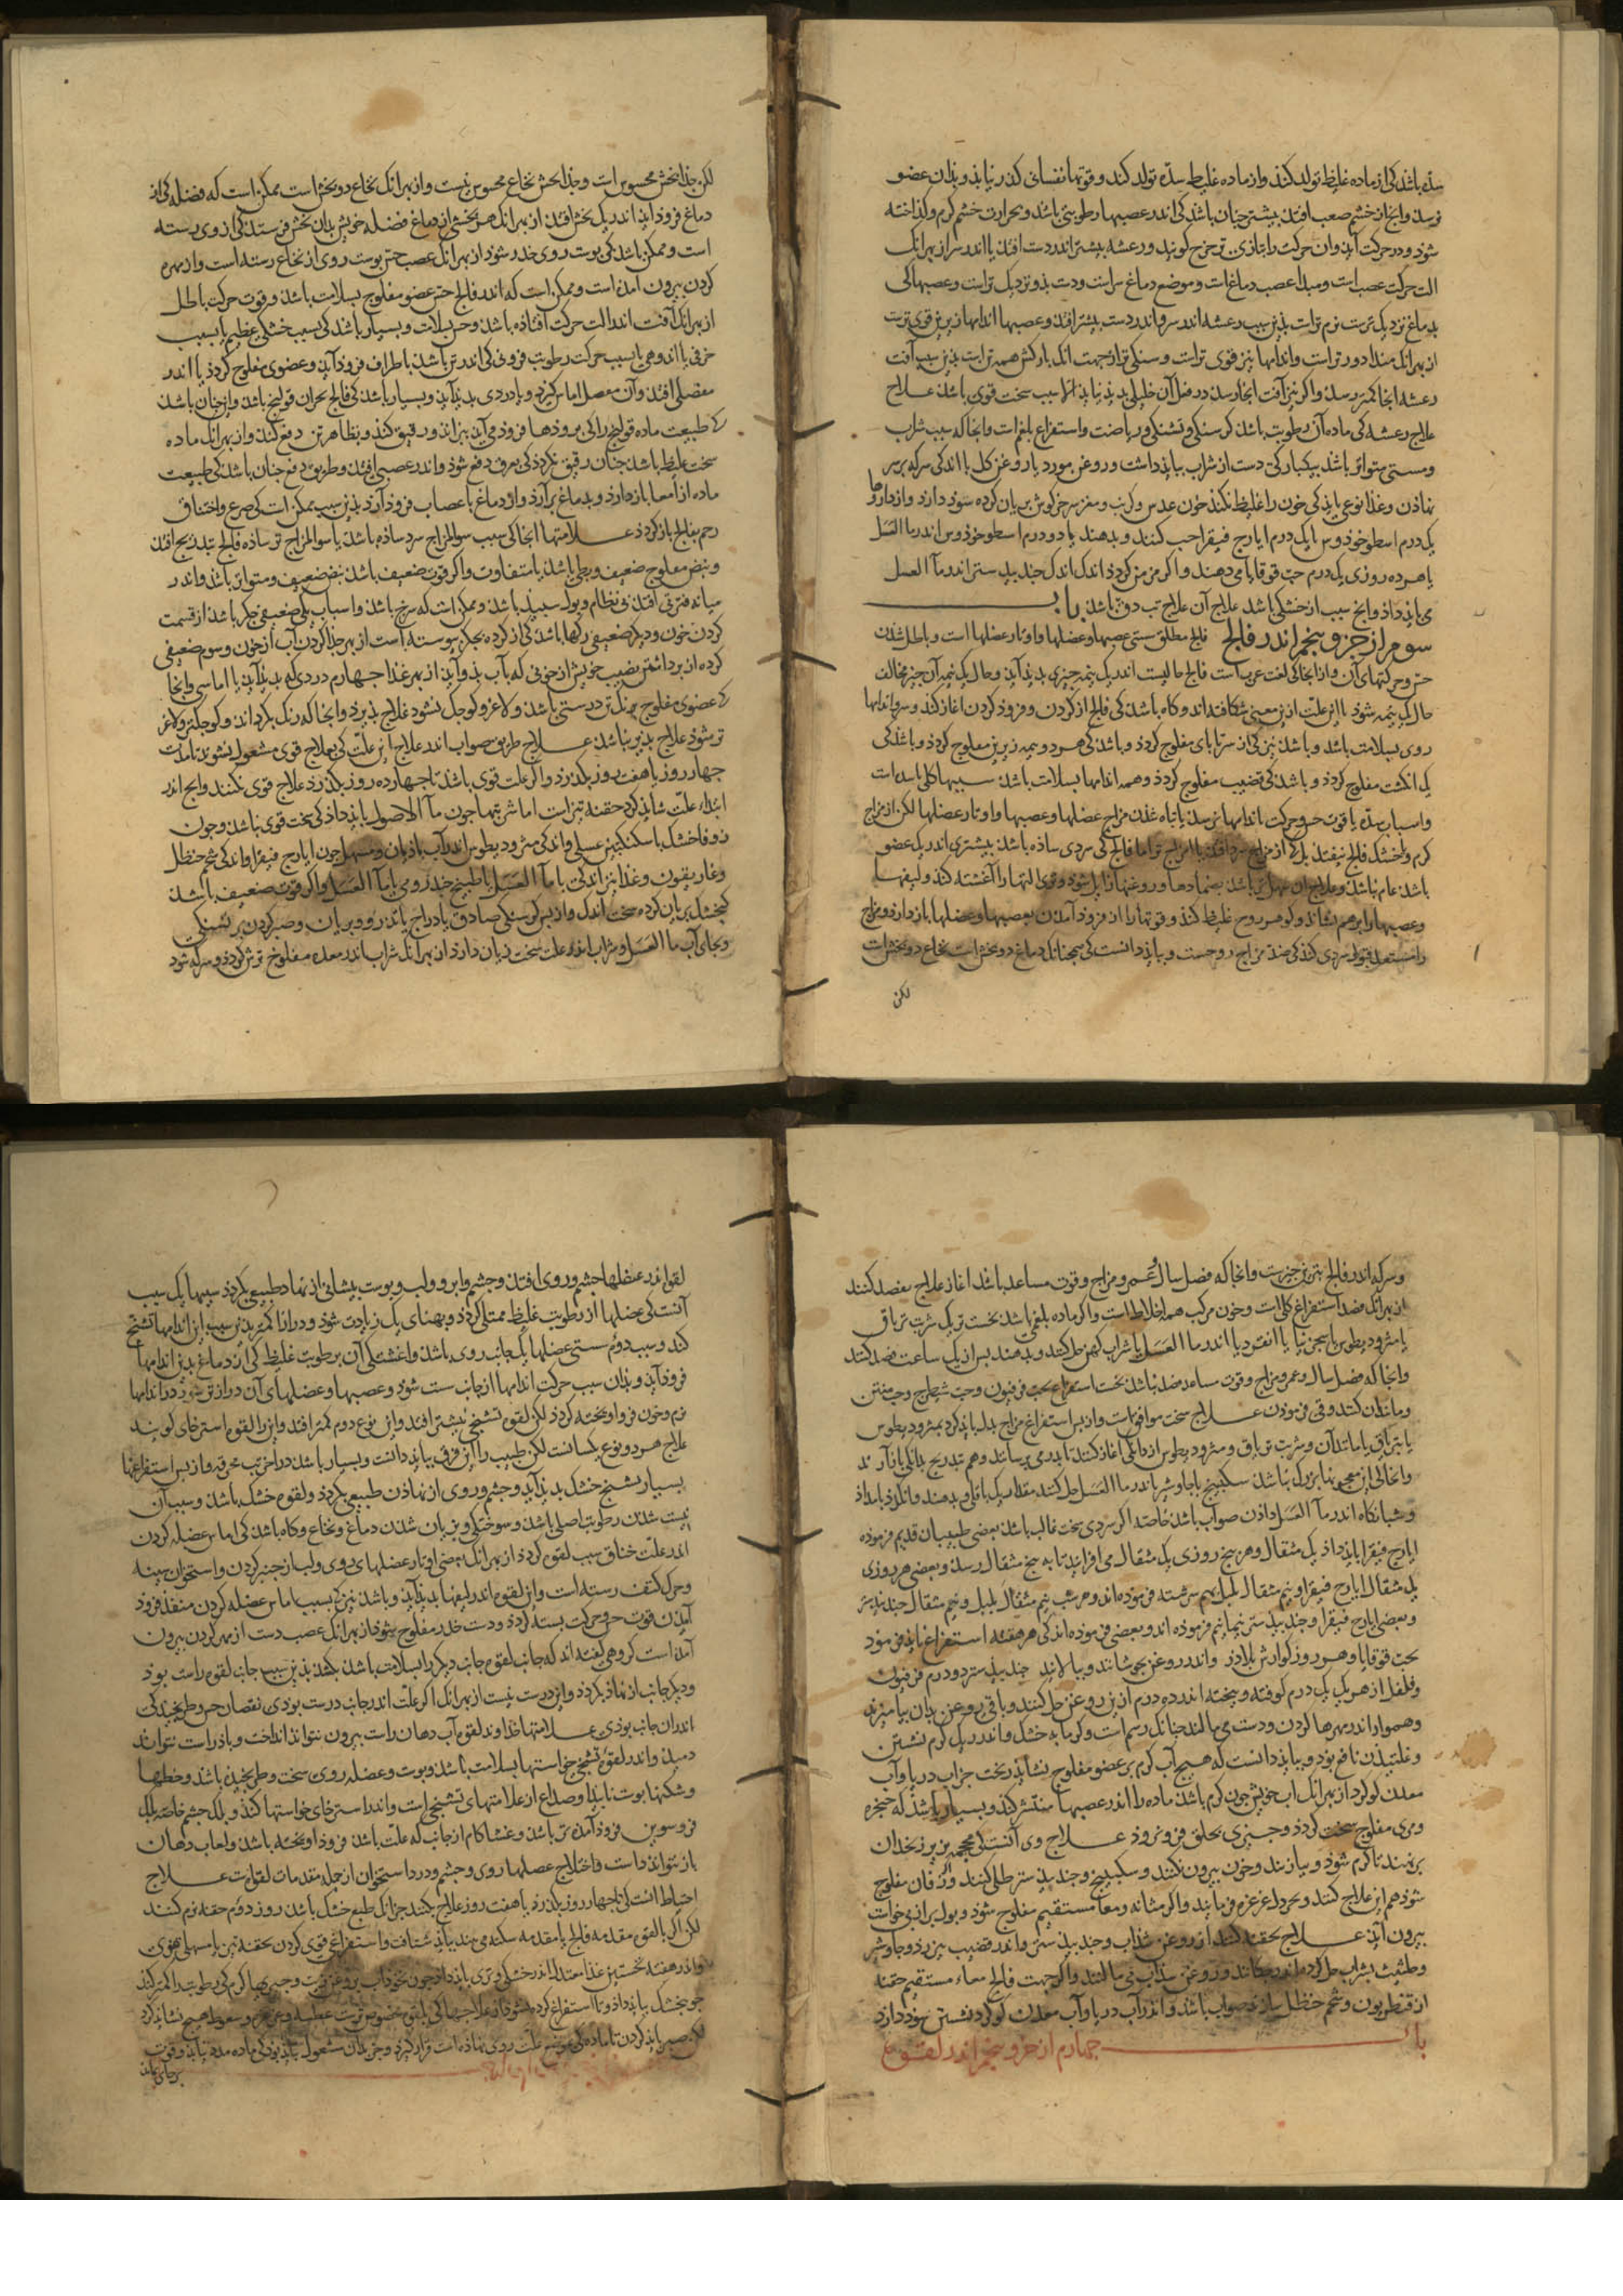 سده باشد کی از ماده غلیظ تولد کند و از ماده غلیظ سده تولد کند و قوتها نفسانی گذر نیابد و بدان عضو
نرسد و انجا از خشم صعب افتد بیشتر چنان باشد کی اندر عصبها رطوبتی باشد و بحرارت خشم گرم و گداخته
شود و در حرکت آید و ان حرکت را بتازی ترجرج گویند و رعشه بیشتر اندر دست افتد یا اندر سر از بهر انک
الت حرکت عصب است و مبدا عصب دماغ است و موضع دماغ سر است و دست بذو نزدیک تر است و عصبها کی
بدماغ نزدیک ترست نرم تر است بذین سبب رعشه اندر سر و اندر دست بیشتر افتد و عصبها اندامها زیرین قوی ترست
از بهر انک مبدا دور تر است و اندامها نیز قوی تر است و سنگی تر از جهت انک بارکش همه تن است بذین سبب آفت
رعشه انجا کمتر رسد و اگر نیز آفت انجا رسد در فعل آن خللی بدید نیاید الا سبب سخت قوی باشد علاج
علاج رعشه کی ماده آن رطوبت باشد گرسنگی و تشنگی و ریاضت و استفراغ بلغم است و انجا که سبب شراب
و مستی متواتر باشد بیکبارگی دست از شراب بباید داشت و روغن مورد یا روغن گل با اندکی سرکه بر سر
نهاذن و غذا نوعی باید کی خون را غلیظ کند چون عدس و کرنب و مغز سر خرگوش بریان کرده سود دارد و از داروها
یک درم اسطوخودوس با یک درم ایارج فیقرا حب کنند و بدهند یا دو درم اسطوخودوس اندر ما العسل
یا هر ده روزی یک درم حب قوقایا می دهند و اگر مزمن گردد اندک اندک جندبیدستر اندر مآ العسل
می باید داد و انج سبب از خشکی باشد علاج آن علاج تب دق باشد باب
سوم از جزو پنجم اندر فالج فالج مطلق سستی عصبها و عضلها و اوتار عضلها است و باطل شدن
حس و حرکتهای آن و از انجا کی لغت عرب است فالج حالیست اندر یک نیمه چیزی بدید آید و حال یک نیمه آن چیز مخالف
حال یک نیمه شود با این علت ازین معنی شکافته اند و گاه باشد کی فالج از گردن و فرود گردن اغاز کند و سر و اندامها
روی بسلامت باشد و باشد نیز کی از سر تا پای مفلوج گردد و باشد کی هر دو نیمه زیرین مفلوج گردد و باشد کی
یک انگشت مفلوج گردد و باشد کی قضیب مفلوج گردد و همه اندامها بسلامت باشد سببها کلی باید است
و اسباب سده یا قوت حس و حرکت باندامها نرسد یا تباه شدن مزاج عضلها و عصبها و اوتار عضلها لکن از مزاج
گرم و خشک فالج نیفتد بل که از مزاج سرد افتد یا از مزاج تر اما فالج کی سردی ساده باشد بیشتری اندر یک عضو
باشد عام نباشد و علاج ان سهل تر باشد بضمادها و روغنها زایل شود و تری التها را آغشته کند و لیفها
و عصبها را برهم نشاند و گوهر روح غلیظ کند و قوتها را از فرود آمدن بعصبها و عضلها باز دارد و مزاج
را مستعد قبول سردی کند کی ضد مزاج روحست و بباید دانست کی همچنانک دماغ دو بخش است نخاع دو بخش است
لکن
لکن جذا بخش محسوس است و جذا بخش نخاع محسوس نیست و از بهر انک نخاع دو بخش است ممکن است که فضله کی از
دماغ فرود اید اندر یک بخش افتد از بهر انک هر بخشی از دماغ فضله خویش بدان بخش فرستد کی از وی رسته
است و ممکن باشد کی پوست روی خدر شود از بهر انک عصب حس پوست روی از نخاع رسته است و از مهره
گردن بیرون امدن است و ممکن است که اندر فالج حس عضو مفلوج بسلامت باشد و قوت حرکت باطل
از بهر انک آفت اندر الت حرکت افتاده باشد و حس بسلامت و بسیار باشد کی بسبب خشمی عظیم یا بسبب
خوفی یا اندوهی یا بسبب حرکت رطوبت فزونی کی اندر تن باشد باطراف فرود آید و عضوی مفلوج گردد یا اندر
مفصلی افتد و آن مفصل اماس گیرد و یا دردی بدید آید و بسیار باشد کی فالج بحران قولنج باشد و این چنان باشد
که طبیعت ماده قولنج را کی بروذها فرود می آید بیزاند و رقیق کند و بظاهر تن دفع کند و از بهر انک ماده
سخت غلیظ باشد چنان رقیق نگردد کی بعرق دفع شود و اندر عصبی افتد و طریق دفع چنان باشد کی طبیعت
ماده از امعا باز دارد و بدماغ بر آرد و از دماغ باعصاب فرود آرد بذین سبب ممکن است کی صرع و اختناق
رحم بفالج باز گردد علامتها انجا کی سبب سوالمزاج سرد ساده باشد یا سوالمزاج تر ساده فالج بتدریج افتد
و نبض مفلوج ضعیف و بطی باشد یا متفاوت و اگر قوت ضعیف باشد نبض ضعیف و متواتر باشد و اندر
میانه فترتی افتد بی نظام و بول سپید باشد و ممکن است که سرخ باشد و اسباب یکی ضعیفی جگر باشد از قسمت
کردن خون و دیگر ضعیفی رگها باشد کی از گرده بجگر پیوسته است از بهر جذا کردن آب از خون و سوم ضعیفی
گرده از برداشتن نصیب خویش از خونی که با آب بذو آید از بهر غذا چهارم دردی که بدید آید یا اماسی و انجا
که عضوی مفلوج برنگ تن درستی باشد و لاغر و کوچک نشود علاج پذیرد و انجا که رنگ بگرداند و کوچکتر و لاغر
تر شود علاج پذیر نباشد علاج طریق صواب اندر علاج این علت کی بعلاج قوی مشغول نشوند تا مدت
چهار روز یا هفت روز بگذرد و اگر علت قوی باشد تا چهارده روز بگذرد علاج قوی نکنند و انج اندر
ابتداء علت شاید کرد حقنه تیز است اما شربتها چون مآ الاصول باید داد کی سخت قوی نباشد و چون
زوفا خشک با سکنگبین عسلی و اندکی مثرودیطوس اندر آب بادیان و مسهل چون ایارج فیقرا و اندکی شحم حنظل
و غاریقون و غذا نیز اندکی با مآ العسل یا طبیخ خندروس یا مآ العسل و اگر قوت ضعیف باشد
گنجشک بریان کرده سخت اندک و از پس گرسنگی صادق یا دراج یا تذرو و بریان و صبر کردن بر تشنگی
و بجای آب ما العسل و شراب اندر علت سخت زیان دارد از بهر انک شراب اندر معده مفلوج ترش گردد و سرکه شود
و سرکه اندر فالج بترین چیزست و انجا که فصل سال و عمر و مزاج و قوت مساعد باشد اغاز علاج بفصد کنند
از بهر انک فصد استفراغ کلی است و خون مرکب همه اخلاط است و اگر ماده بلغمی باشد نخست تریک شربت تریاق
یا مثرودیطوس یا سجزنیا یا انقردیا اندر ما العسل یا شراب کهن حل کنند و بدهند پس از یک ساعت فصد کنند
و انجا که فصل سال و عمر و مزاج و قوت مساعد فصد نباشد نخست استفراغ بحب فرفیون و حب شیطرج و حب منتن
و مانند آن کنند و قی فرمودن علاج سخت موافق است و از پس استفراغ مزاج بدل باید کرد بمثرودیطوس
یا بتریاق یا مانند آن و شربت تریاق و مثرودیطوس از دانگی اغاز کنند تا بدرمی برسانند و هم بتدریج بدانکی باز آرند
و انجا کی این معجونها بزرگ نباشد سکبینج یا جاوشیر اندر ما العسل حل کنند مقدار یک باقلی و بدهند و انگدان بامداد
و شبانگاه اندر مآ العسل دادن صواب باشد خاصه اگر سردی سخت غالب باشد بعضی طبیبان قدیم فرموده
ایارج فیقرا باید داد یک مثقال و هر پنج روزی یک مثقال می افزایند تا به پنج مثقال رسد و بعضی هر روزی
یک مثقال ایارج فیقرا و نیم مثقال پلپل بهم سرشته فرموده اند و هر شب نیم مثقال پلپل و نیم مثقال جندبیدستر
و بعضی ایارج فیقرا و جندبیدستر نیمانیم فرموده اند و بعضی فرموده اند کی هر هفته استفراغ باید فرمود
بحب قوقایا و هر روز گوارش بلادر و اندر روغن بجوشانند و بپالایند جندبیدستر دو درم فرفیون
و فلفل از هر یک یک درم کوفته و بیخته اندر ده درم ازین روغن حل کنند و باقی روغن بدان بیامیزند
و همواره اندر مهرها گردن و دست می مالند چنانک رسم است و گرمابه خشک و اندر ریگ گرم نشستن
و غلتیدن نافع بود و بباید دانست که هیچ آب گرم بر عضو مفلوج نشاید ریخت جز آب دریا و آب
معدن گوگرد از بهر انک اب خویش چون گرم باشد ماده را اندر عصبها منتشر کند و بسیار باشد که حنجره
و مری مفلوج سخت گردد و چیزی بحلق فرو نرود علاج وی آنست کی محجمه بر زیر زنخدان
بر نهند تا گرم شود و بیازند و خون بیرون نکنند و سکبینج و جندبیدستر طلی کنند و زفان مفلوج
شود هم این علاج کنند و بخردل غرغره فرمایند و اگر مثانه و معا مستقیم مفلوج شود و بول و براز بی خواست
بیرون آید علاج بحقنه کنند از روغن سذاب و جندبیدستر و اندر قضیب نیز رود و جاوشیر
و حلتیت بشراب حل کرده اندر چکانند و روغن سذاب نی مالند و اگر جهت فالج معاء مستقیم حقنه
از قنطریون و شحم حنظل سازند صواب باشد و اندر آب دریا و آب معدن گوگرد نشستن سود دارد
باب چهارم از جزو پنجم اندر لقوه
لقوه اندر عضلها چشم و روی افتد و چشم و ابرو و لب و پوست پیشانی از نهاد طبیعی بگردد سببها یک سبب
آنست کی عضلها از رطوبت غلیظ ممتلی گردد و پهنای یک زیادت شود و درازا کمتر بذین سبب این اندامها تشنج
کند و سبب دوم سستی عضلها یک جانب روی باشد و اغشتگی آن برطوبت غلیظ کی از دماغ بدین اندامها
فرود آید و بدان سبب حرکت اندامها از جانب سست شود و عصبها و عضلهای آن دراز تر شود و در اندامها
نرم و چون فرو آویخته گردد لکن لقوه تشنجی بیشتر افتد و این نوع دوم کمتر افتد و این را لقوه استرخای گویند
علاج هر دو نوع یکسانست لکن طبیب را این فرق بباید دانست و بسیار باشد در اخر تب محرقه و از پس استفراغها
بسیار تشنج خشک بدید آید و چشم و روی از نهاذن طبیعی بگردد و لقوه خشک باشد و سبب آن
نیست شدن رطوبت اصلی باشد و سوختگی و بریان شدن دماغ و نخاع و گاه باشد کی اماس عضله گردن
اندر علت خناق سبب لقوه گردد از بهر انک بعضی اوتار عضلهای روی و لب از چنبر گردن و استخوان سینه
و خرک کتف رسته است و این لقوه اندر لیفها بدید آید و باشد نیز کی بسبب اماس عضله گردن منفذ فرود
آمدن قوت حس و حرکت بسته گردد و دست خدر و مفلوج شود از بهر انک عصب دست از مهره گردن بیرون
آمده است گروهی گفته اند که جانب لقوه جانب دیگر را بسلامت باشد بکشد بذین سبب جانب لقوه راست بود
و دیگر جانب از نهاد بگردد و این درست نیست از بهر انک اگر علت اندر جانب درست بودی نقصان حس و طرنجیدگی
اندر ان جانب بودی علامتها خداوند لقوه آب دهان راست بیرون نتواند انداخت و باد راست نتواند
دمید و اندر لقوه تشنجی حواسها بسلامت باشد و پوست و عضله روی سخت و طرنجیده باشد و خطها
و شکنها پوست ناپیدا و صداع از علامتهای تشنجی است و اندر استرخای حواسها کند و پلک چشم خاصه پلک
فروسوین فرود آمده تر باشد و غشا کام از جانب که علت باشد فرود آویخته باشد و لعاب دهان
باز نتواند داشت و اختلاج عضلها روی و چشم و درد استخوان از جمله مقدمات لقوه است علاج
احتیاط انست کی تا چهار روز بگذرد یا هفت روز علاج نکنند جز انک طبع خشک باشد روز دوم حقنه نرم کنند
لکن اگر با لقوه مقدمه فالج یا مقدمه سکته می بیند بباید شتافت و استفراغی قوی کردن بحقنه تیز یا مسهلی قوی
و اندر هفته نخستین غذا معتدل اندر خشکی و تری باید داد چون نخوداب بروغن زیت و چیزیها گرم کی رطوبت را کمتر کند
چو گنجشک بباید داد و تا استفراغ کرده نشود از علاجها کی بلقوه مخصوص ترست عطسه و غرغره و سعوط هیچ نشاید کرد
لکن صبر باید کردن تا ماده کی بموضع علت روی نهاده است قرار گیرد و جز بدان مشغول نباید بود کی ماده مدد نیابد و قوت
بر جای بماند